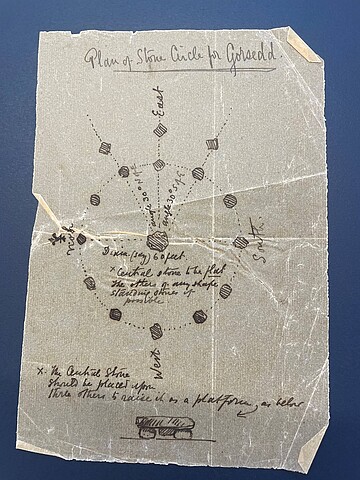 Plan of Stone Circle for Gorsedd.
East
angle 30°
angle 30°
North
South.
Diam (say) 60 feet.
x Central stone to be flat
the others of any shape
standing stones if
possible
West
x. The Central Stone
should be placed upon
three others to raise it as a platform, as below